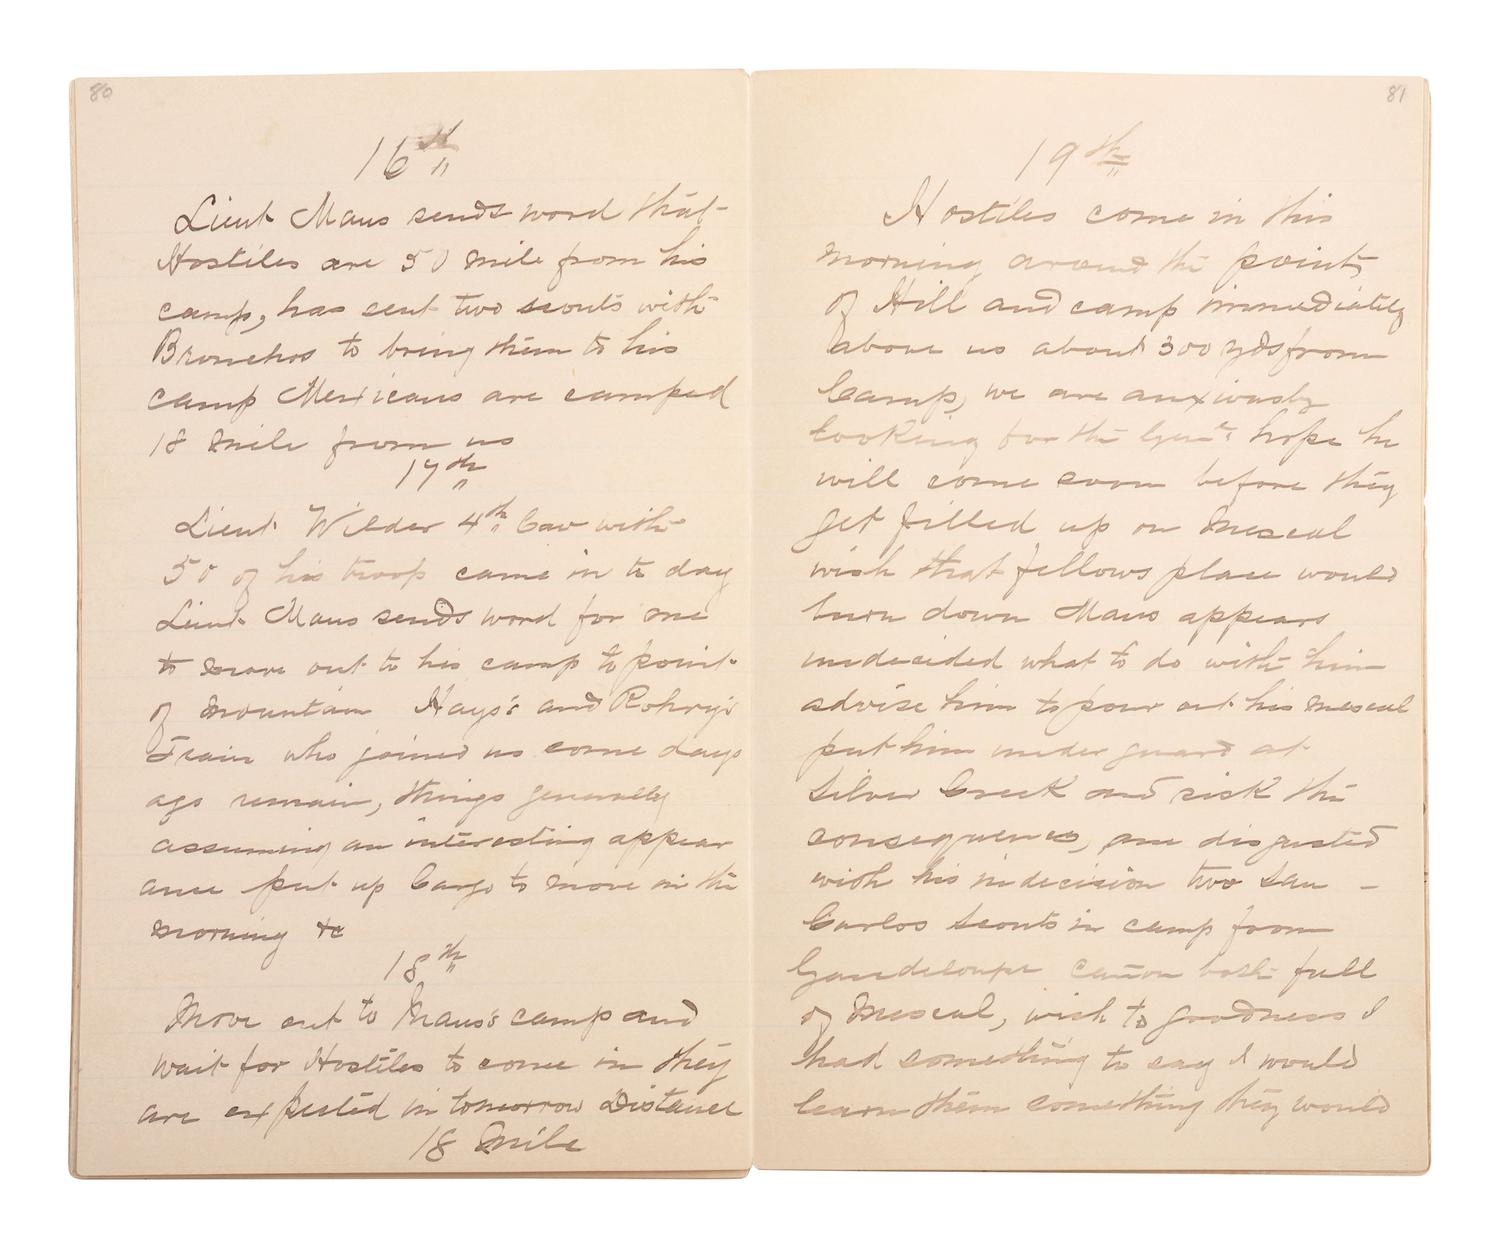 80
16th
Lieut Maus sends word that
Hostiles are 50 mile from his
camp, has sent two scouts with
Bronchos to bring them to his
camp Mexicans are camped
18 mile from us
17th
Lieut Wilder 4th Cav with
50 of his troop came in to day
Lieut Maus sends word for me
to move out to his camp to point
of mountain Hays's and Rohry's
Train who joined us some days
ago remain, things generally
assuming an interesting appear
ance put up Cargo to move in the
morning &c
18th
Move out to Maus's camp and
wait for Hostiles to come in they
are expected in tomorrow Distance
18 Mile
81
19th
Hostiles come in this
morning, around the point
of Hill and camp immediately
above us about 300 yds from
Camp, we are anxiously
looking for the Genl. hope he
will come soon before they
get filled up on Mescal
wish that fellows place would
burn down Maus appears
undecided what to do with him
advise him to pour out his mescal
put him under guard at
Silver Creek and risk the
consequences, am disgusted
with his indecision two San -
Carlos Scouts in camp from
Gaudeloupe cañon both full
of Mescal, wish to goodness I
had something to say I would
learn them something they would